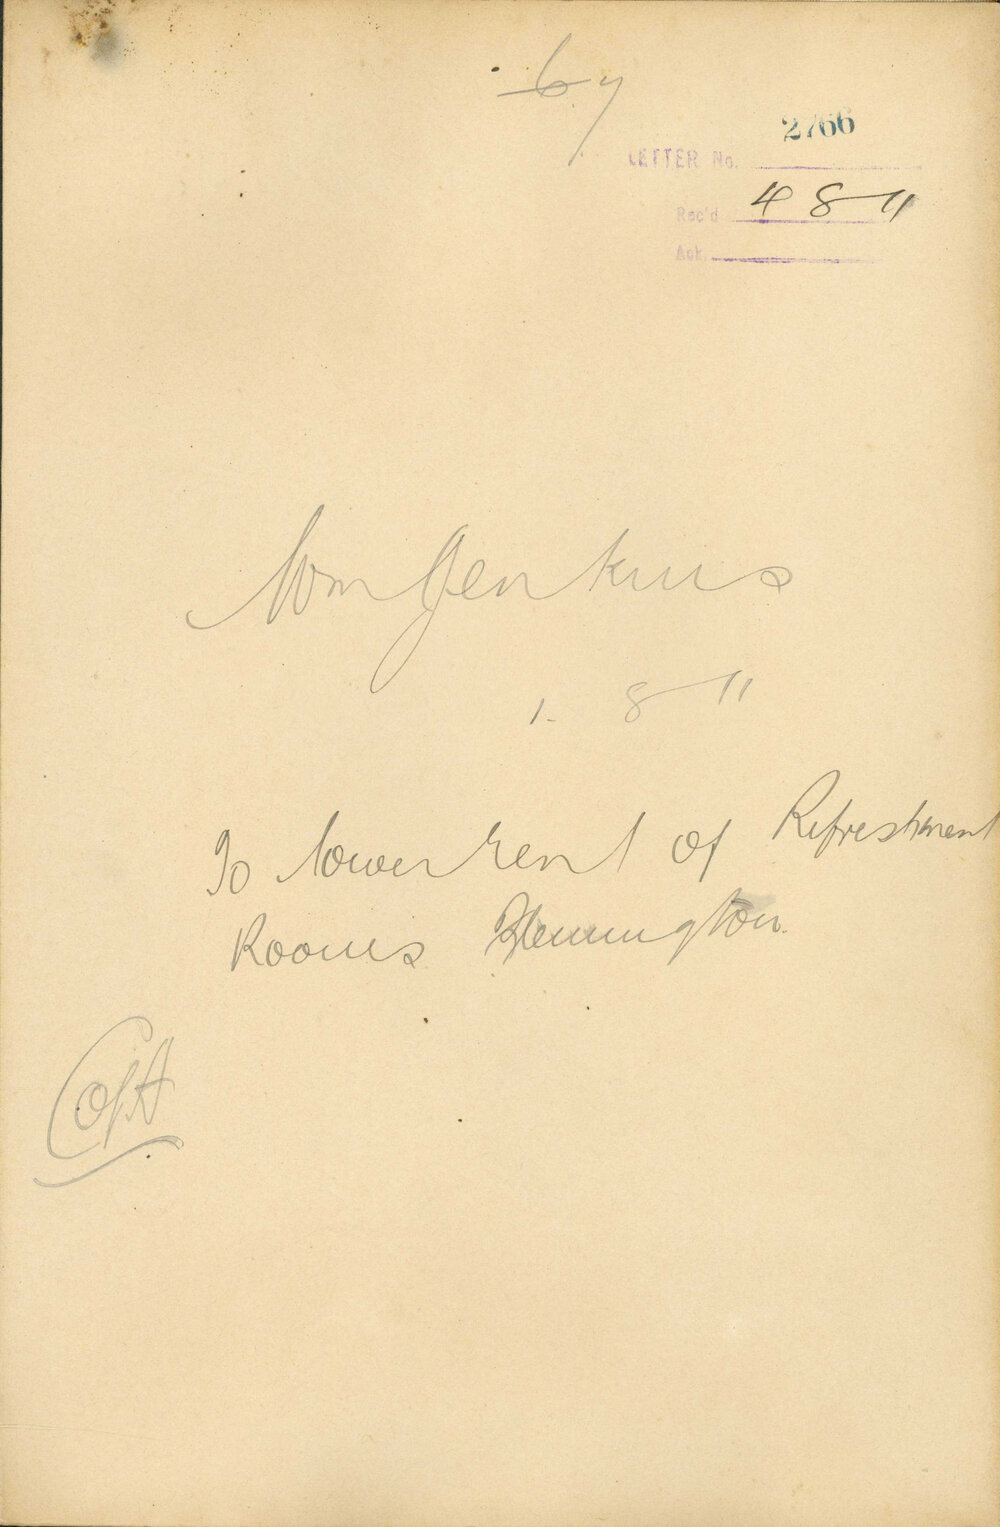 67
2766
LETTER No.
Rec'd 4 8 11
Ack.
Wm Jenkins
1. 8 11
To lower rent of Refreshment
Rooms Flemington